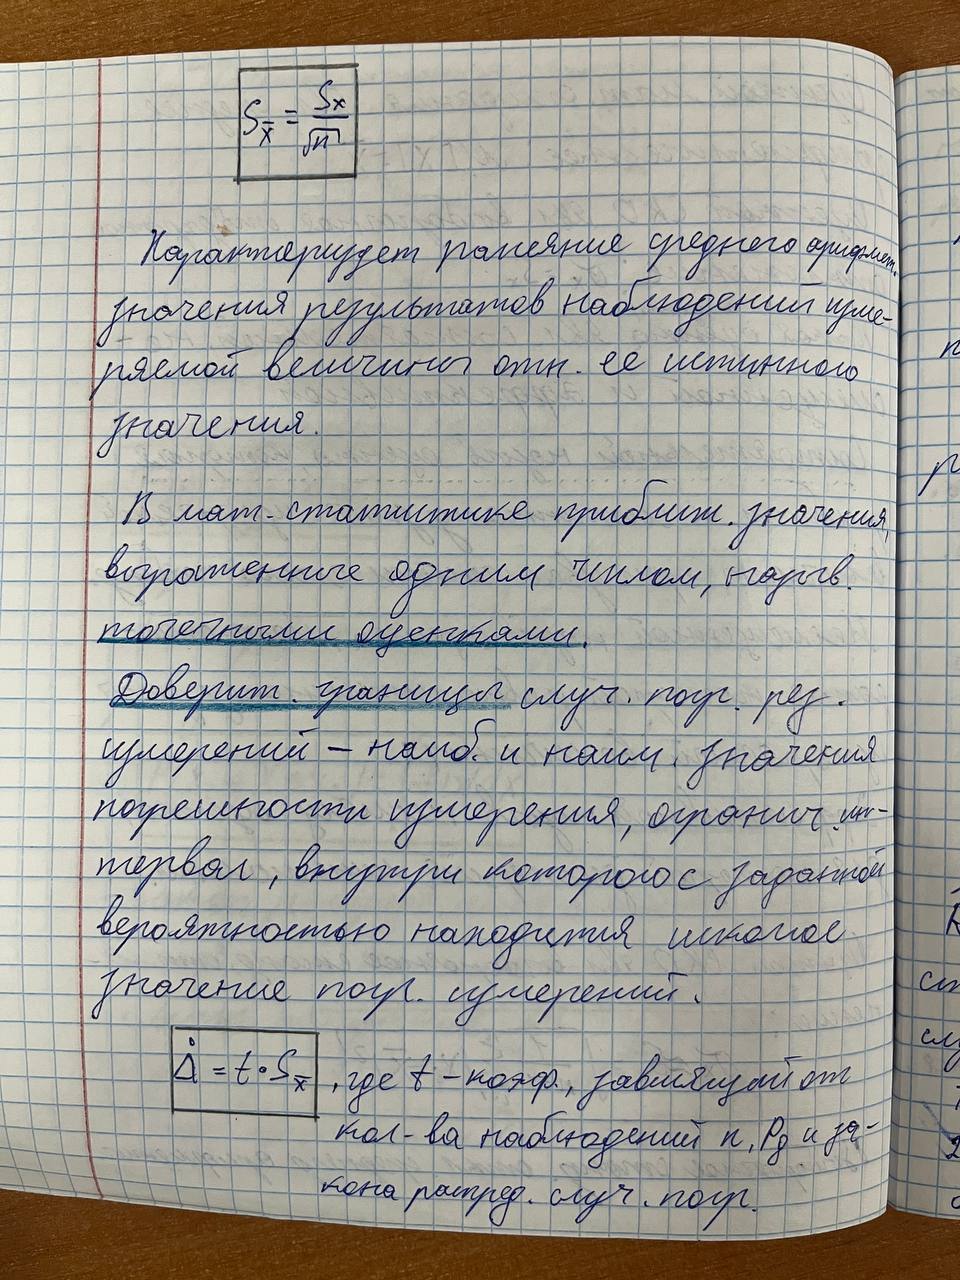 S_x̄ = S_x / √n
Характеризует рассеяние среднего арифмет.
значения результатов наблюдений изме-
ряемой величины отн. ее истинного
значения.
В мат. статистике приближ. значения,
выраженные одним числом, назыв.
точечными оценками.
Доверит. границы случ. погр. рез.
измерений – наиб. и наим. значения
погрешности измерения, огранич. ин-
тервал, внутри которого с заданной
вероятностью находится искомое
значение погр. измерений.
Δ̇ = t · S_x̄, где t – коэф., зависящий от
кол-ва наблюдений n, Pд и за-
кона распред. случ. погр.